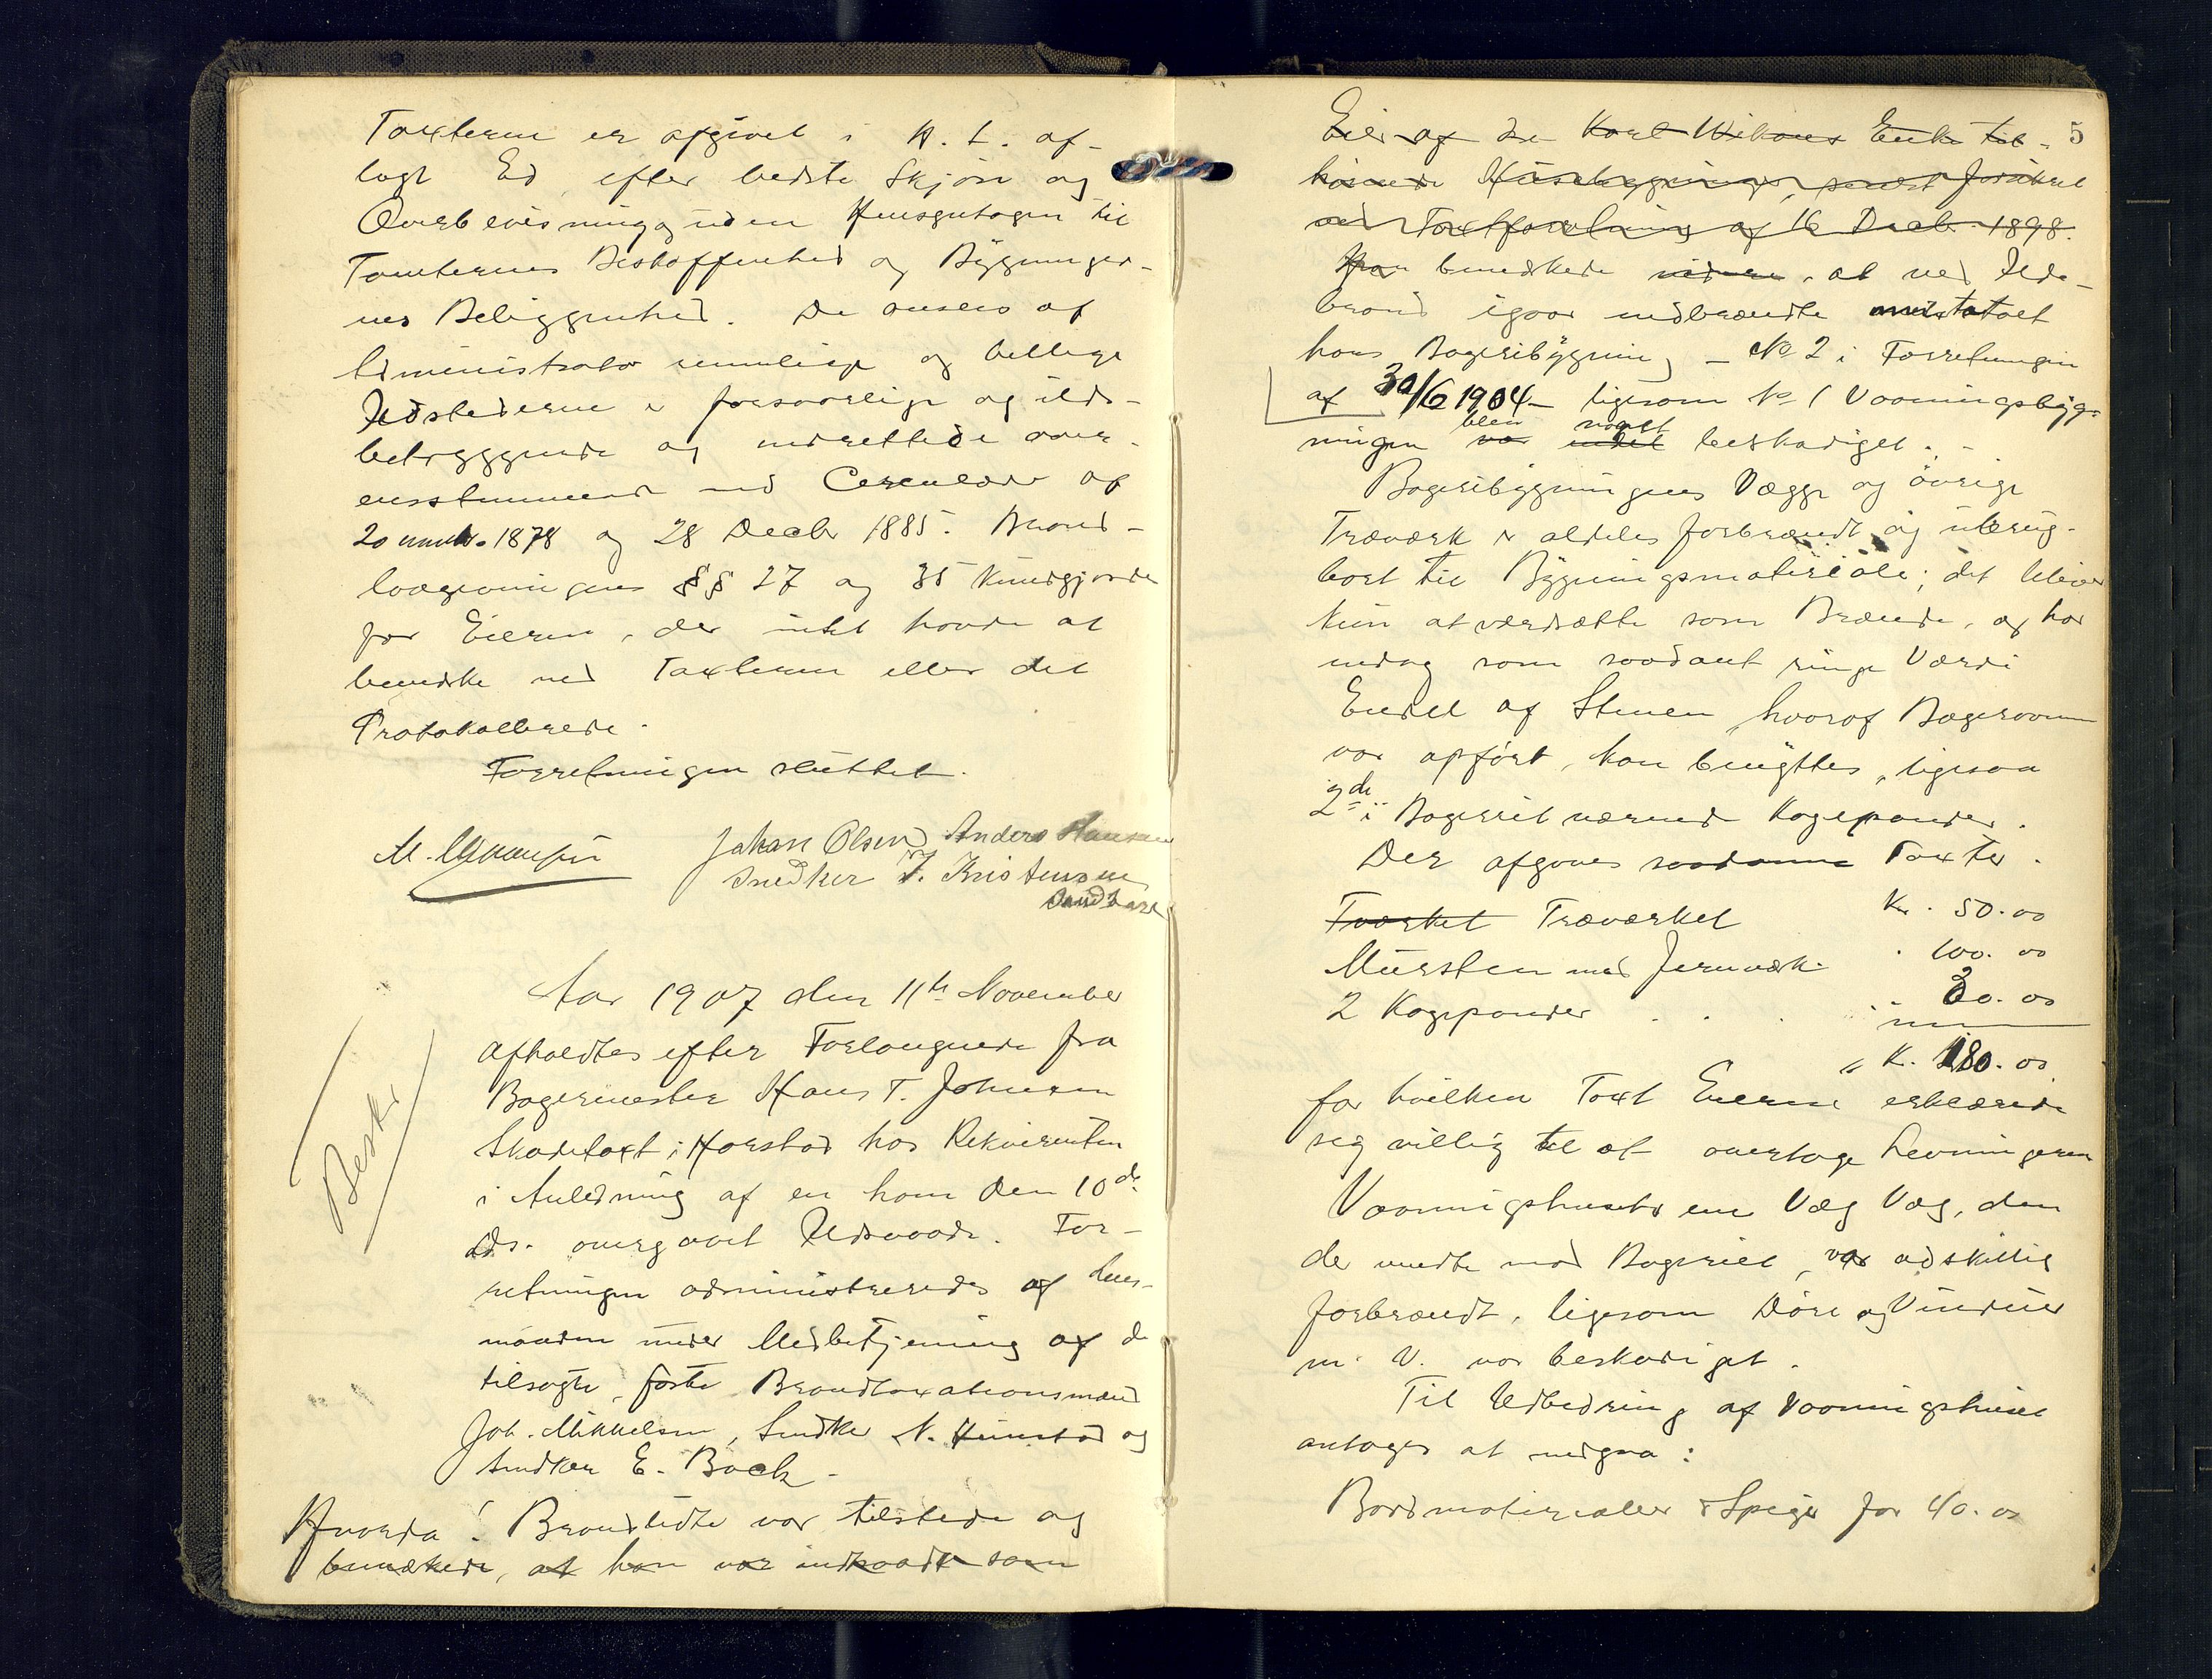 Taxterne er afgivet i H. t. af-
lagt Ed, efter bedste Skjøn og
Overbevisning og uden Hensyntagen til
Tomternes Beskaffenhed og Bygninger-
nes Beliggenhed. De ansees af
Administrator rimelige og billige
Ildstederne er forsvarlige og ilds-
betryggende og indrettede over-
ensstemmende med Circulære af
20 1878 og 28 Decbr 1885. Brand-
lovgivningens §§ 27 og 35 kundgjorde
for Eieren, der intet havde at
bemerke ved Taxterne eller det
Protokollerede.
Forretningen sluttet.
Johan Olsen Anders Hansen
Snedker J. Kristensen
Aar 1907 den 11te November
afholdtes efter Forlangende fra
Bagermester Hans T. Johnsen
Skadetaxt i Harstad hos Rekvirenten
i Anledning af en ham den 10de
ds. overgaaet Ildsvaade. For-
retningen administreredes af Lens-
manden under Medbetjening af de
tilsagte, faste Brandtaxationsmænd
Joh. Mikkelsen, Snedker N. og
Snedker E. Bock.
Beskr
Hvorda! Brandlidte var tilstede og
bemærkede, at han var indkaldt som
5
Eier af de Karl Wikans Enke til-
hørende Husebygninger, senest forsikret
ved Taxtforretning af 16 Decb. 1898.
Han bemerkede videre, at ved Ilde-
brand igaar nedbrændte totalt
hans Bageribygning – No 2 i Forretningen
af 30/6 1904 – ligesom No 1 Vaaningsbyg-
blev noget
ningen var endel beskadiget. –
Bageribygningens Vægge og øvrige
Træværk er aldeles forbrændt og ubrug-
bart til Bygningsmateriale; det bliver
kun at værdsætte som Brænde, og har
endog som saadant ringe Værdi
Endel af Stenen, hvoraf Bagerovnen
var opført, kan benyttes, ligesaa
2de i Bageriet værende Kogepander.
Der afgaves saadanne Taxter.
Træværket Kr. 50.00
Mursten med Jernværk 100.00
2 Kogepander . . . 30.00
K. 180.00
for hvilken Taxt Eieren erklærede
sig villig til at overtage Levningerne
Vaaningshusets ene Væg Væg, den
der vendte mod Bageriet, var adskillig
forbrændt, ligesom Døre og Vinduer
m. V. var beskadiget.
Til Udbedring af Vaaningshuset
antages at medgaa:
Bordmaterialer & Spiger for 40.00